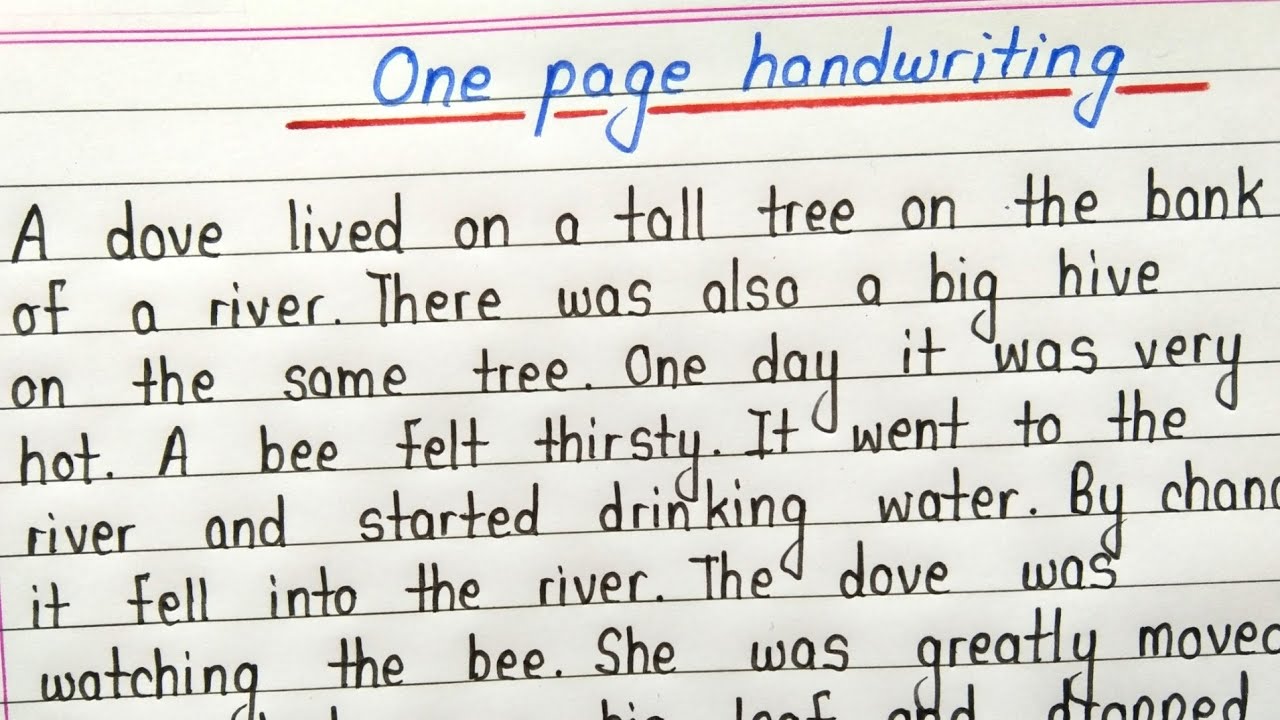 One page handwriting
A dove lived on a tall tree on the bank
of a river. There was also a big hive
on the same tree. One day it was very
hot. A bee felt thirsty. It went to the
river and started drinking water. By chanc
it fell into the river. The dove was
watching the bee. She was greatly moved
big leaf and